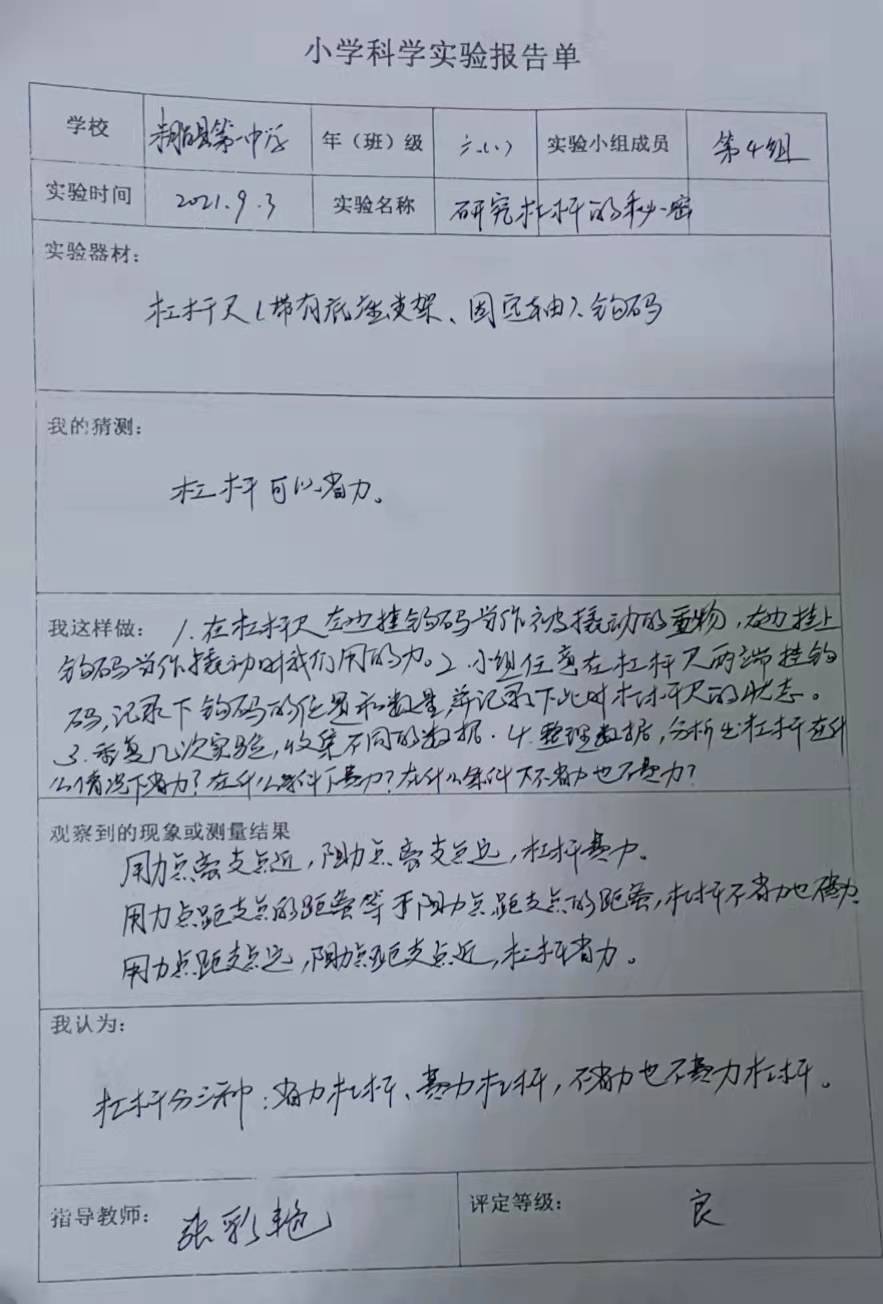 小学科学实验报告单
学校 县第一中学 年（班）级 六（1） 实验小组成员 第4组
实验时间 2021.9.3 实验名称 研究杠杆的秘密
实验器材：
杠杆尺（带有底座支架、固定轴）、钩码
我的猜测：
杠杆可以省力。
我这样做： 1. 在杠杆尺左边挂钩码当作被撬动的重物，右边挂上
钩码当作撬动时我们用的力。2. 小组任意在杠杆尺两端挂钩
码，记录下钩码的位置和数量，并记录下此时杠杆尺的状态。
3. 重复几次实验，收集不同的数据. 4. 整理数据，分析出杠杆在什
么情况下省力？在什么条件下费力？在什么条件下不省力也不费力？
观察到的现象或测量结果
用力点离支点近，阻力点离支点远，杠杆费力。
用力点距支点的距离等于阻力点距支点的距离，杠杆不省力也
用力点距支点远，阻力点距支点近，杠杆省力。
我认为：
杠杆分三种：省力杠杆、费力杠杆，不省力也不费力杠杆。
指导教师： 张彩艳 评定等级： 良